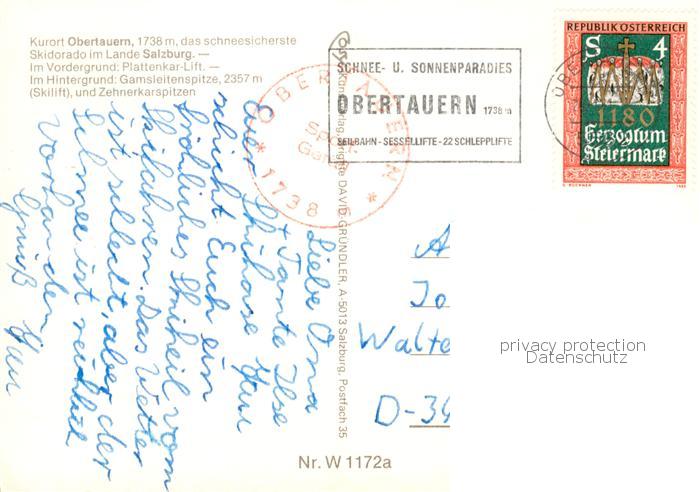 Kurort Obertauern, 1738 m, das schneesicherste
Skidorado im Lande Salzburg. —
Im Vordergrund: Plattenkar-Lift. —
Im Hintergrund: Gamsleitenspitze, 2357 m
(Skilift), und Zehnerkarspitzen
SCHNEE- U. SONNENPARADIES
OBERTAUERN 1738 m
SEILBAHN - SESSELLIFTE - 22 SCHLEPPLIFTE
OBERTAUERN
Sport
* 1738 *
REPUBLIK ÖSTERREICH
S 4
1180
Herzogtum
Steiermark
Liebe Oma
+ Tante Ilse
Euer
schickt Euch ein
fröhliches Skiheil vom
Skifahren. Das Wetter
ist schlecht, aber der
Schnee ist
vorhanden
Gruß
DAVID-GRÜNDLER, A-5013 Salzburg, Postfach 35
A
Jo
Walte
D-34
privacy protection
Datenschutz
Nr. W 1172a